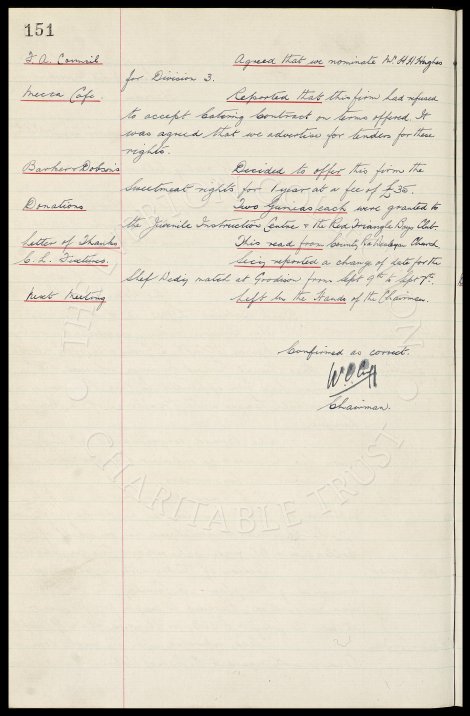 151
F. A. Council Agreed that we nominate Mr H H Hughes
for Division 3.
Mecca Cafe Reported that this firm had refused
to accept Catering Contract on terms offered. It
was agreed that we advertise for tenders for these
rights.
Barker & Dobson's Decided to offer this firm the
Sweetmeat rights for 1 year at a fee of £35.
Donations Two Guineas each were granted to
the Juvenile Instruction Centre & the Red Triangle Boys Club
Letter of Thanks This read from County Rd Wesleyan Church
C. L. Fixtures. Secy reported a change of date for the
Shef Wedy match at Goodison from Sept 9th to Sept 7th.
Next Meeting Left in the Hands of the Chairman.
Confirmed as correct.
Chairman.
THE
CHARITABLE TRUST